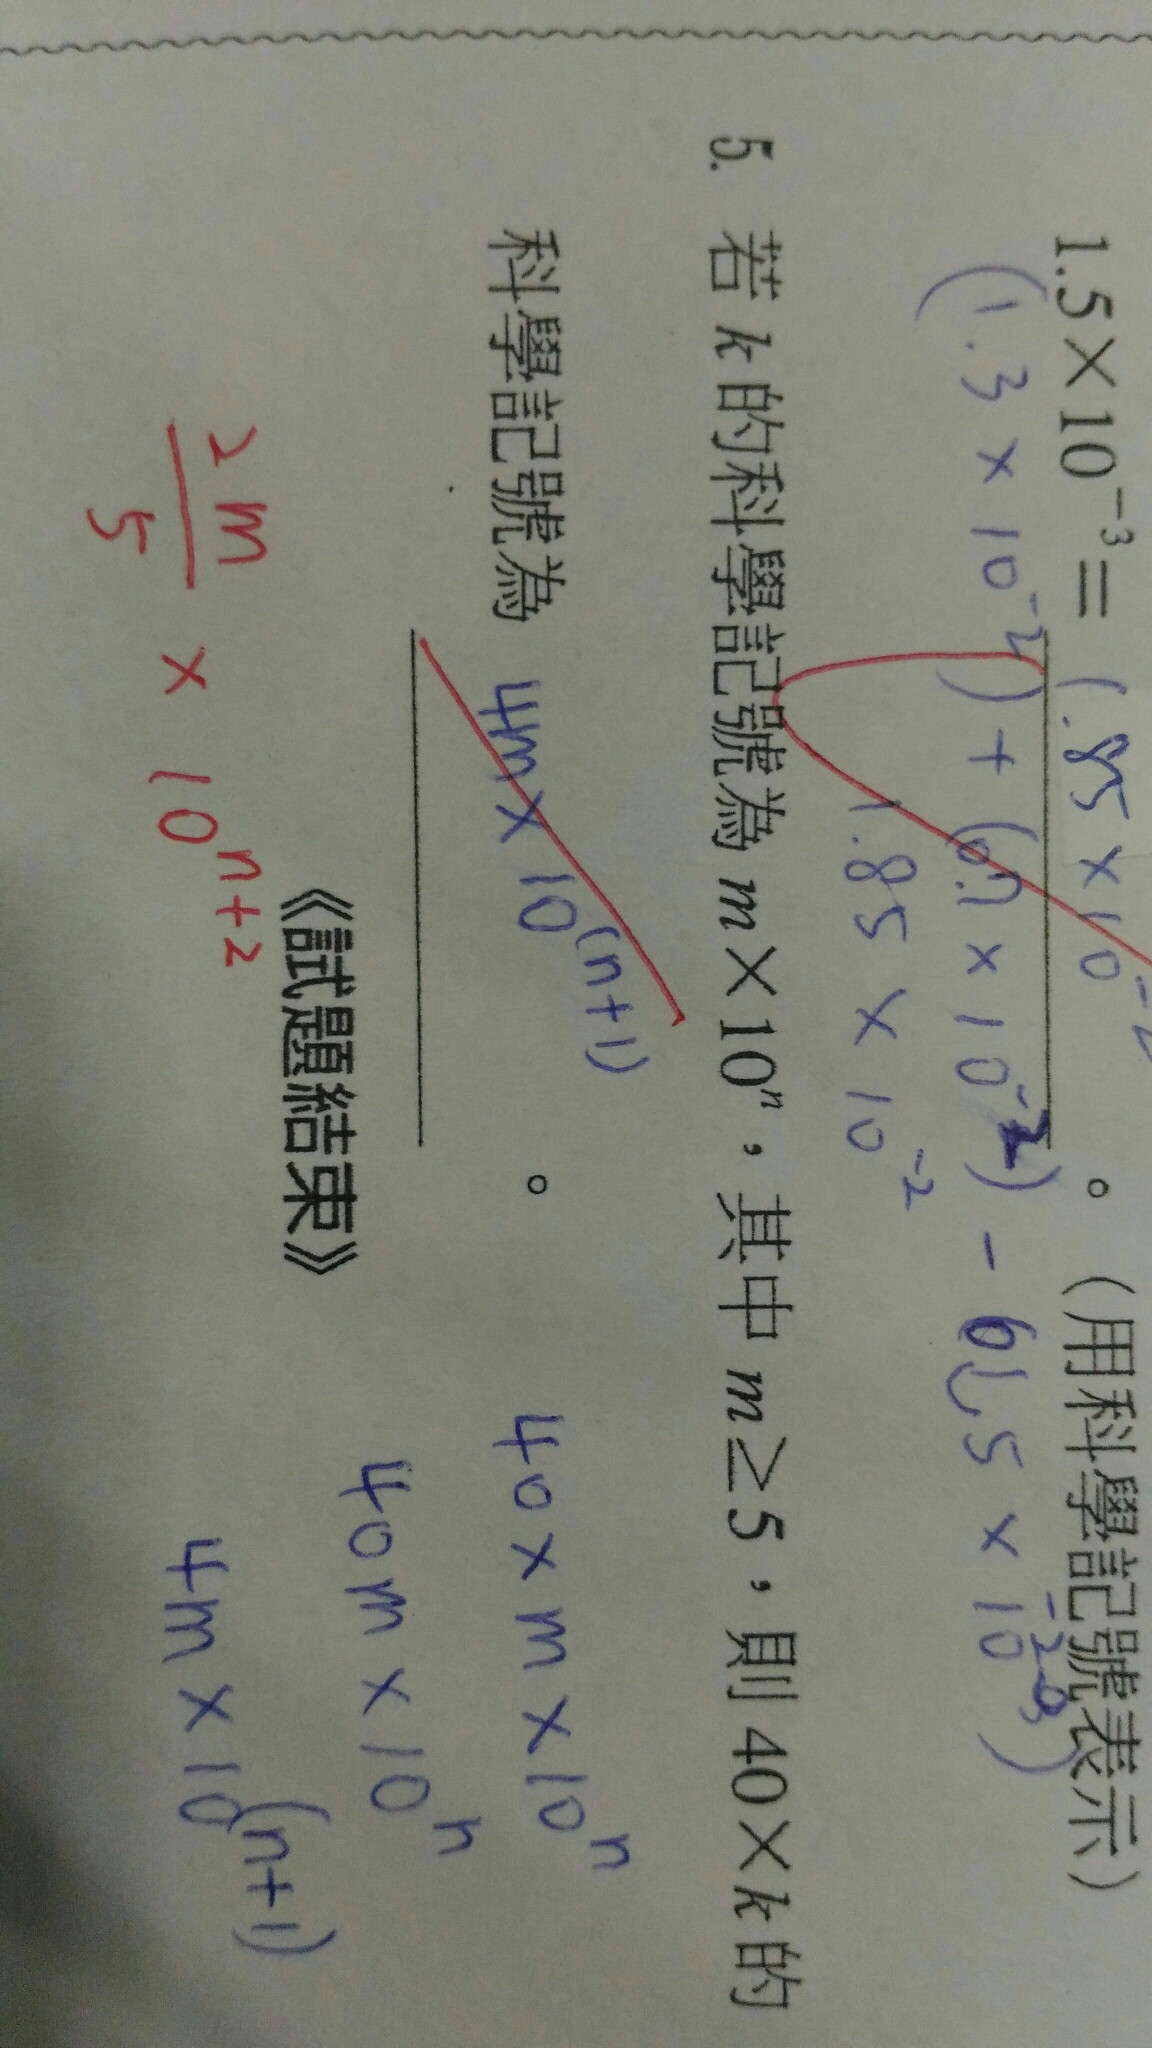 1.5×10⁻³＝ 1.85 × 10⁻² 。（用科學記號表示）
(1.3 × 10⁻²) + (0.7 × 10⁻²) -
1.85 × 10⁻²
5. 若 k 的科學記號為 m×10ⁿ，其中 m≥5，則 40×k 的
科學記號為 4m×10⁽ⁿ⁺¹⁾ 。
40 × m × 10ⁿ
《試題結束》
40m × 10ⁿ
4m × 10⁽ⁿ⁺¹⁾
2m/5 × 10ⁿ⁺²